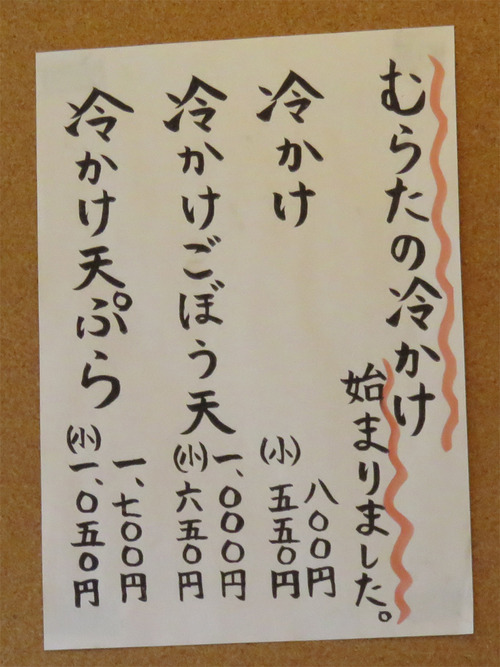 むらたの冷かけ
始まりました。
冷かけ
八〇〇円
(小)五五〇円
冷かけごぼう天
一、〇〇〇円
(小)六五〇円
冷かけ天ぷら
一、七〇〇円
(小)一、〇五〇円